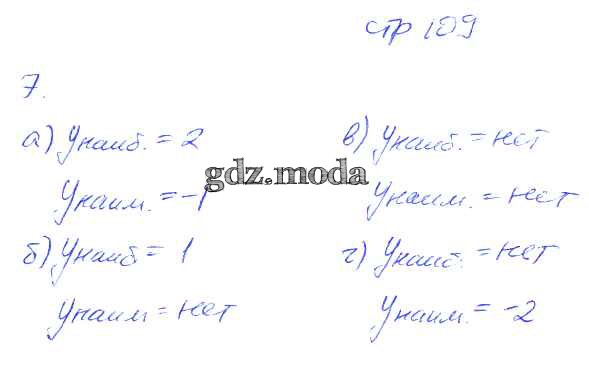 стр 109
7.
а) Унаиб. = 2
Унаим. = -1
б) Унаиб = 1
Унаим = нет
в) Унаиб. = нет
Унаим. = нет
г) Унаиб. = нет
Унаим. = -2
gdz.moda